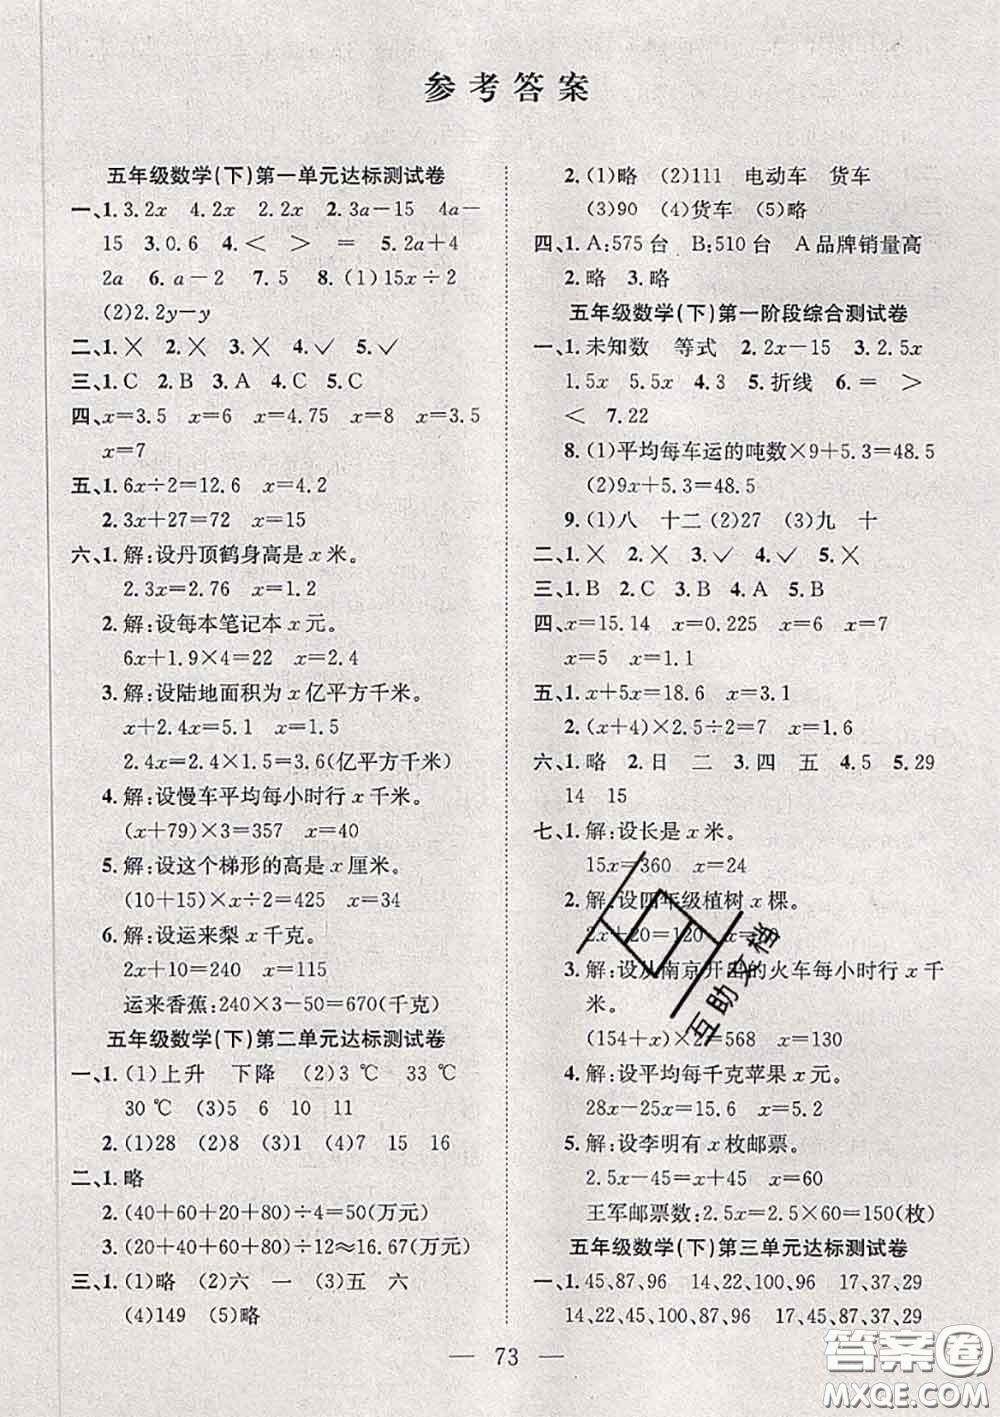 参考答案
五年级数学(下)第一单元达标测试卷
一、1.3.2x 4.2x 2.2x 2.3a－15 4a－
15 3.0.6 4.＜ ＞ ＝ 5.2a＋4
2a 6.a－2 7.5 8.(1)15x÷2
(2)2.2y－y
二、1.✕ 2.✕ 3.✕ 4.✓ 5.✓
三、1.C 2.B 3.A 4.C 5.C
四、x＝3.5 x＝6 x＝4.75 x＝8 x＝3.5
x＝7
五、1.6x÷2＝12.6 x＝4.2
2.3x＋27＝72 x＝15
六、1.解:设丹顶鹤身高是x米。
2.3x＝2.76 x＝1.2
2.解:设每本笔记本x元。
6x＋1.9×4＝22 x＝2.4
3.解:设陆地面积为x亿平方千米。
x＋2.4x＝5.1 x＝1.5
2.4x＝2.4×1.5＝3.6(亿平方千米)
4.解:设慢车平均每小时行x千米。
(x＋79)×3＝357 x＝40
5.解:设这个梯形的高是x厘米。
(10＋15)x÷2＝425 x＝34
6.解:设运来梨x千克。
2x＋10＝240 x＝115
运来香蕉:240×3－50＝670(千克)
五年级数学(下)第二单元达标测试卷
一、1.(1)上升 下降 (2)3 ℃ 33 ℃
30 ℃ (3)5 6 10 11
2.(1)28 (2)8 (3)1 (4)7 15 16
二、1.略
2.(40＋60＋20＋80)÷4＝50(万元)
3.(20＋40＋60＋80)÷12≈16.67(万元)
三、1.(1)略 (2)六 一 (3)五 六
(4)149 (5)略
2.(1)略 (2)111 电动车 货车
(3)90 (4)货车 (5)略
四、1.A:575台 B:510台 A品牌销量高
2.略 3.略
五年级数学(下)第一阶段综合测试卷
一、1.未知数 等式 2.2x－15 3.2.5x
1.5x 5.5x 4.3 5.折线 6.＝ ＞
＜ 7.22
8.(1)平均每车运的吨数×9＋5.3＝48.5
(2)9x＋5.3＝48.5
9.(1)八 十二 (2)27 (3)九 十
二、1.✕ 2.✕ 3.✓ 4.✓ 5.✕
三、1.B 2.C 3.C 4.A 5.B
四、x＝15.14 x＝0.225 x＝6 x＝7
x＝5 x＝1.1
五、1.x＋5x＝18.6 x＝3.1
2.(x＋4)×2.5÷2＝7 x＝1.6
六、1.略 2.日 二 3.四 五 4.5 5.29
14 15
七、1.解:设长是x米。
15x＝360 x＝24
2.解:设四年级植树x棵。
2x＋20＝120 x＝50
3.解:设从南京开出的火车每小时行x千
米。
(154＋x)×2＝568 x＝130
4.解:设平均每千克苹果x元。
28x－25x＝15.6 x＝5.2
5.解:设李明有x枚邮票。
2.5x＝x＋45＋45 x＝60
王军邮票数:2.5x＝2.5×60＝150(枚)
五年级数学(下)第三单元达标测试卷
一、1.45,87,96 14,22,100,96 17,37,29
14,22,45,100,87,96 17,45,87,37,29
73
互助文档
答案圈
MXQE.COM